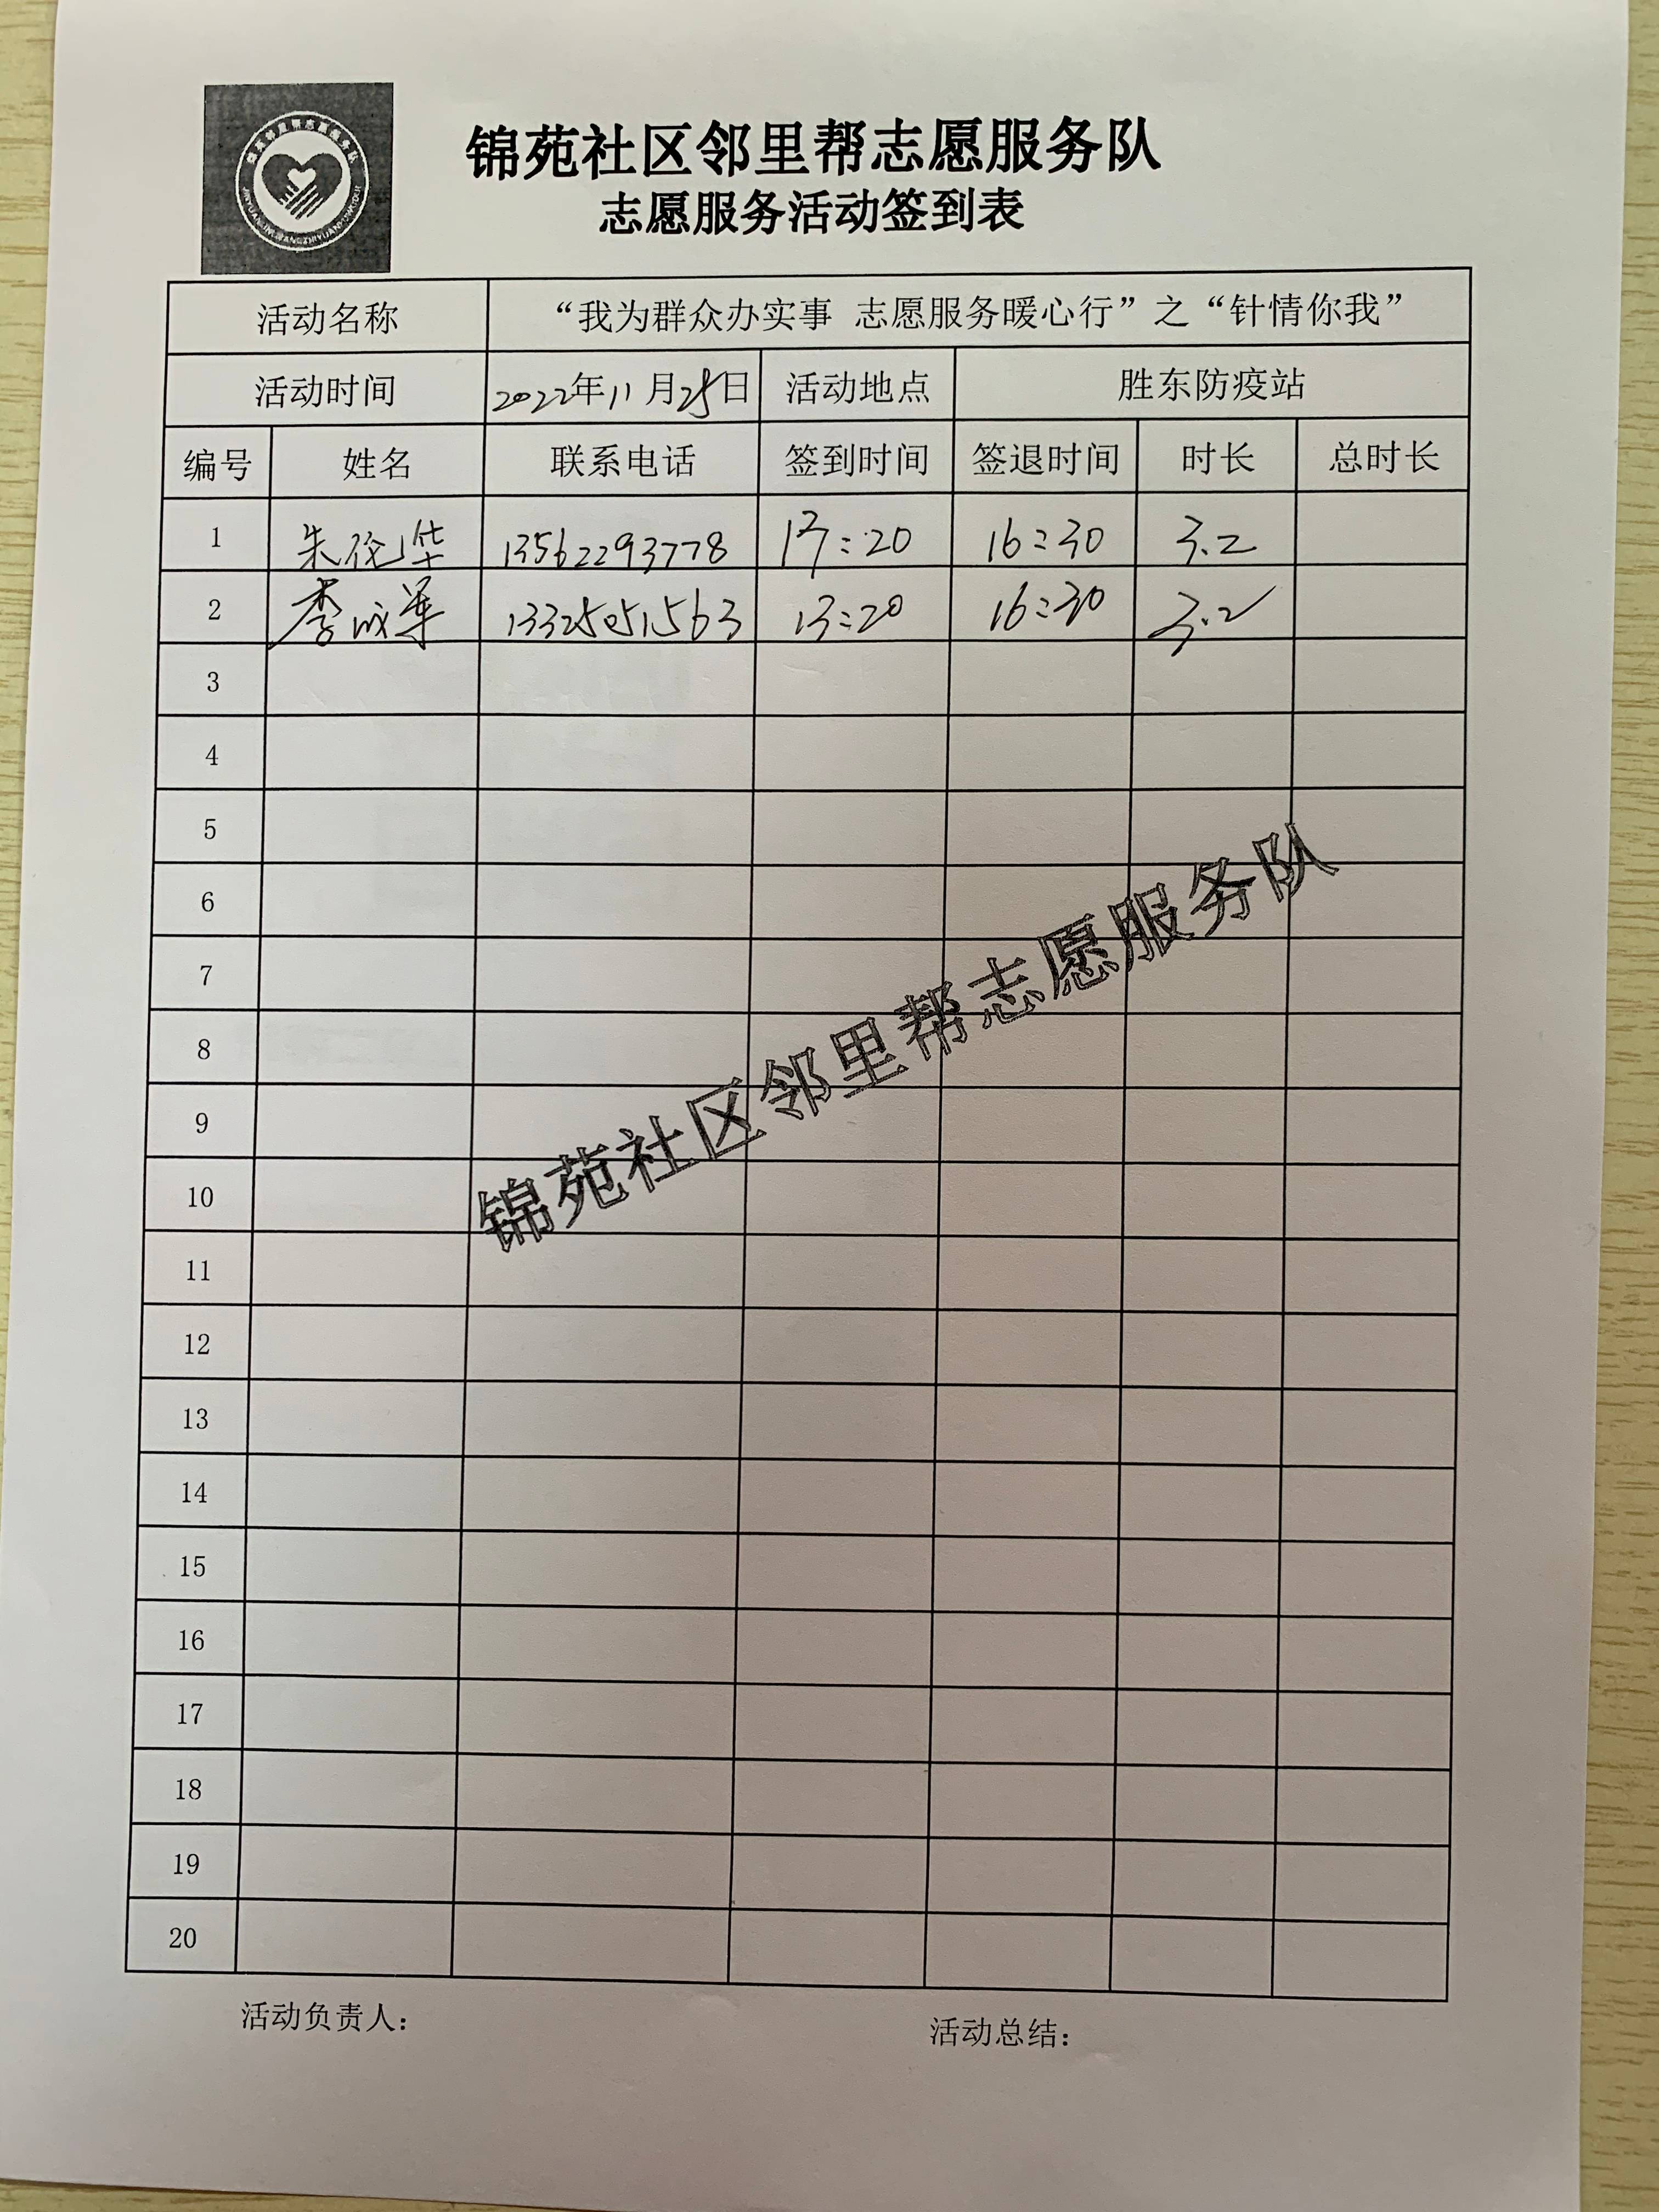 锦苑社区邻里帮志愿服务队
志愿服务活动签到表
活动名称 “我为群众办实事 志愿服务暖心行”之“针情你我”
活动时间 2022年11月25日 活动地点 胜东防疫站
编号 姓名 联系电话 签到时间 签退时间 时长 总时长
1 朱伦华 13562293778 13:20 16:30 3.2
2 李成军 13325051563 13:20 16:30 3.2
3
4
5
6
7
8
9
10
11
12
13
14
15
16
17
18
19
20
锦苑社区邻里帮志愿服务队
活动负责人: 活动总结: